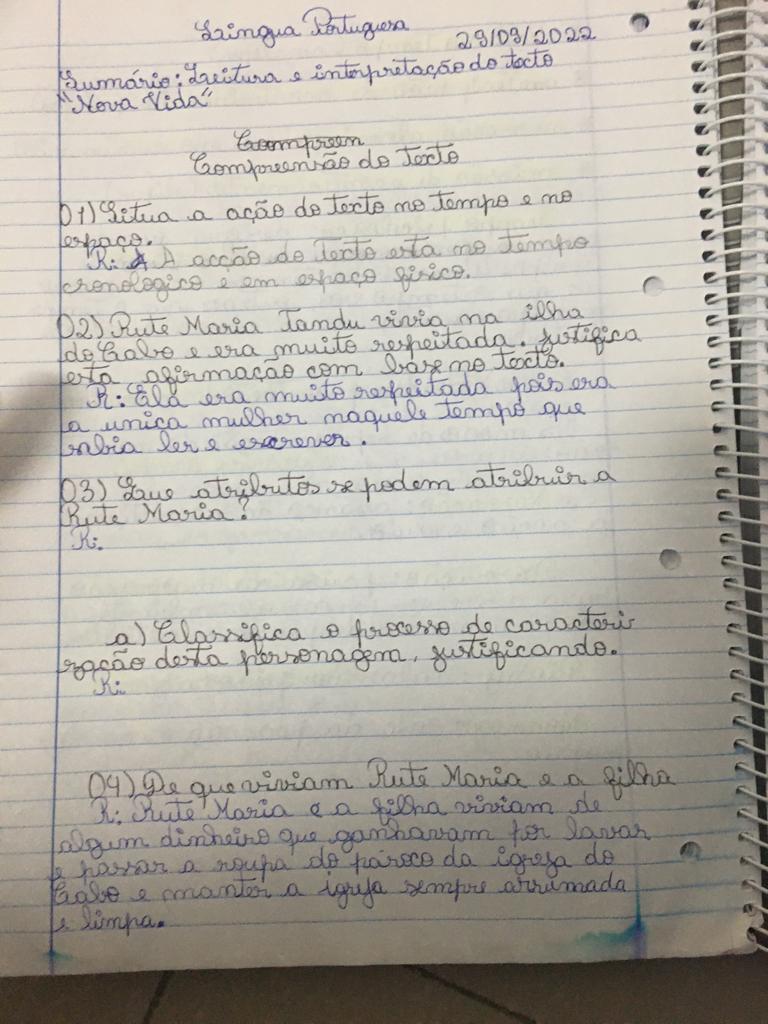 Língua Portuguesa
29/09/2022
Sumário: Leitura e interpretação do texto
"Nova Vida"
Compreen
Compreensão do Texto
01) Situa a ação do texto no tempo e no
espaço.
R: A A acção do texto está no tempo
cronologico e em espaço fisico.
02) Rute Maria Tandu vivia na ilha
do Cabo e era muito respeitada. Justifica
esta afirmação com base no texto.
R: Ela era muito respeitada pois era
a unica mulher naquele tempo que
sabia ler e escrever.
03) Que atributos se podem atribuir a
Rute Maria?
R:
a) Classifica o processo de caracteri
zação desta personagem, justificando.
R:
04) De que viviam Rute Maria e a filha
R: Rute Maria e a filha viviam de
algum dinheiro que ganhavam por lavar
e passar a roupa do pároco da igreja do
Cabo e manter a igreja sempre arrumada
e limpa.